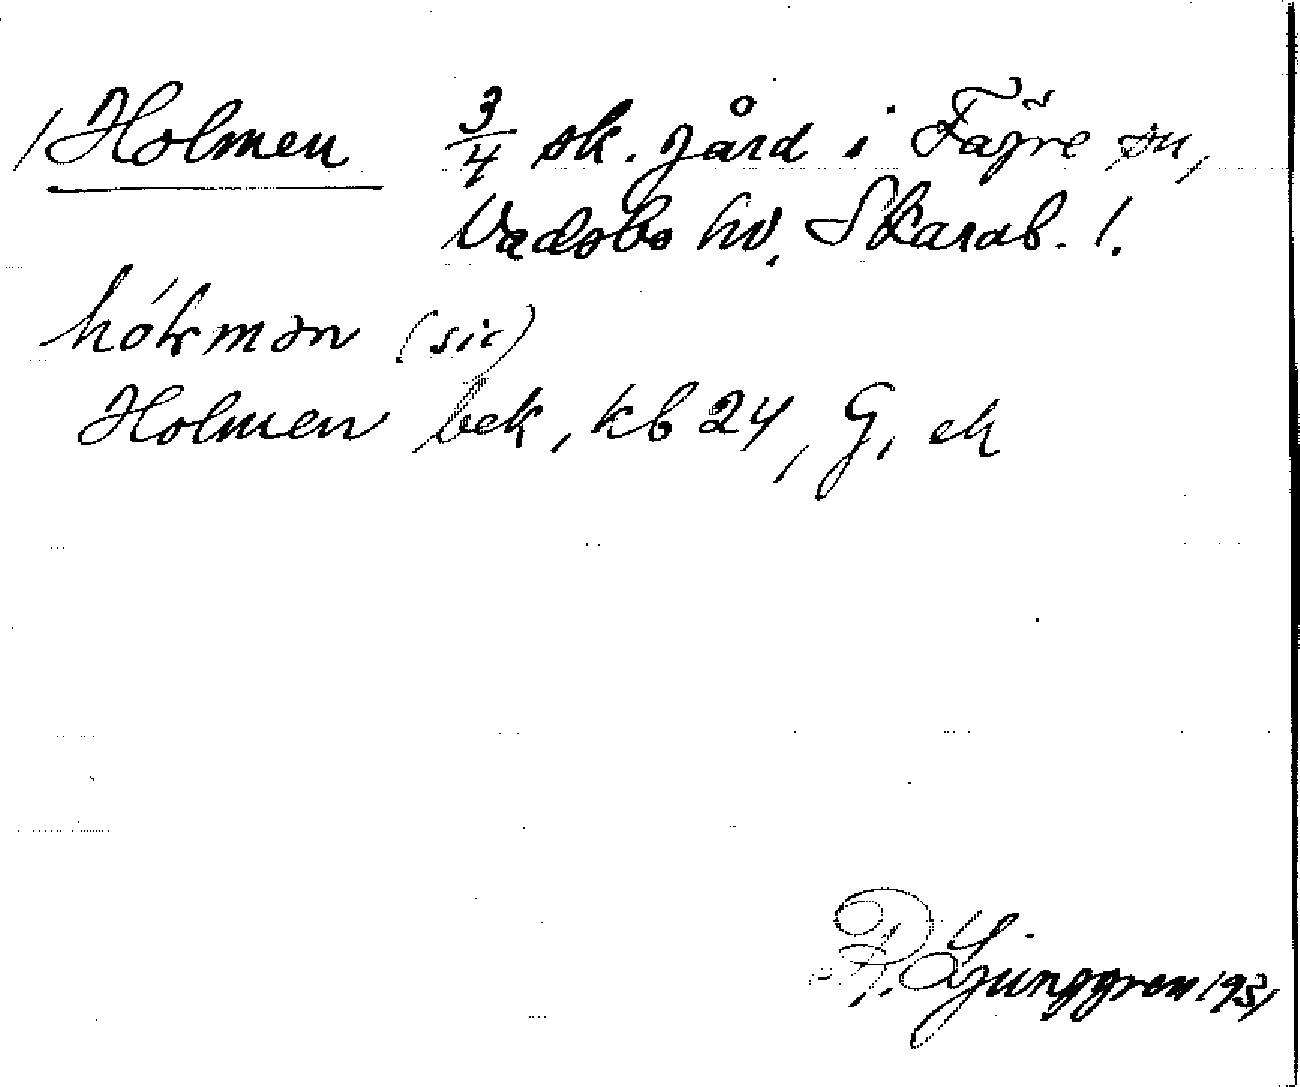 /Holmen 3/4 sk. gård i Fägre sn,
Vadsbo hd, Skarab. l.
hólmən (sic)
Holmen bek, kb 24, G, ek
R. Ljunggren 1931